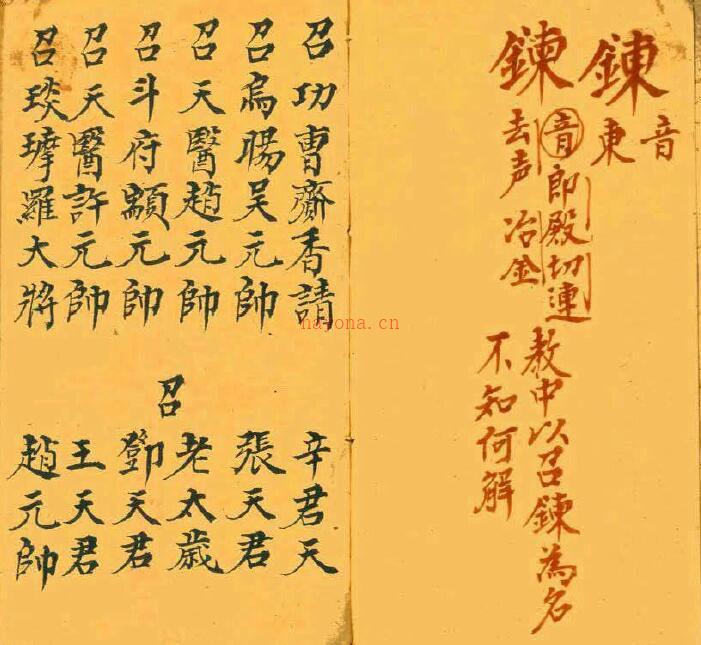 錬
音
東
鍊
音即殿切連
去声 冶金
教中以召鍊為名
不知何解
召功曹齎香請
召烏暘吴元帥
召天醫趙元帥
召斗府顓元帥
召天醫許元帥
召琰羅大將
召
辛君天
張天君
老太歲
鄧天君
王天君
趙元帥
nayona.cn